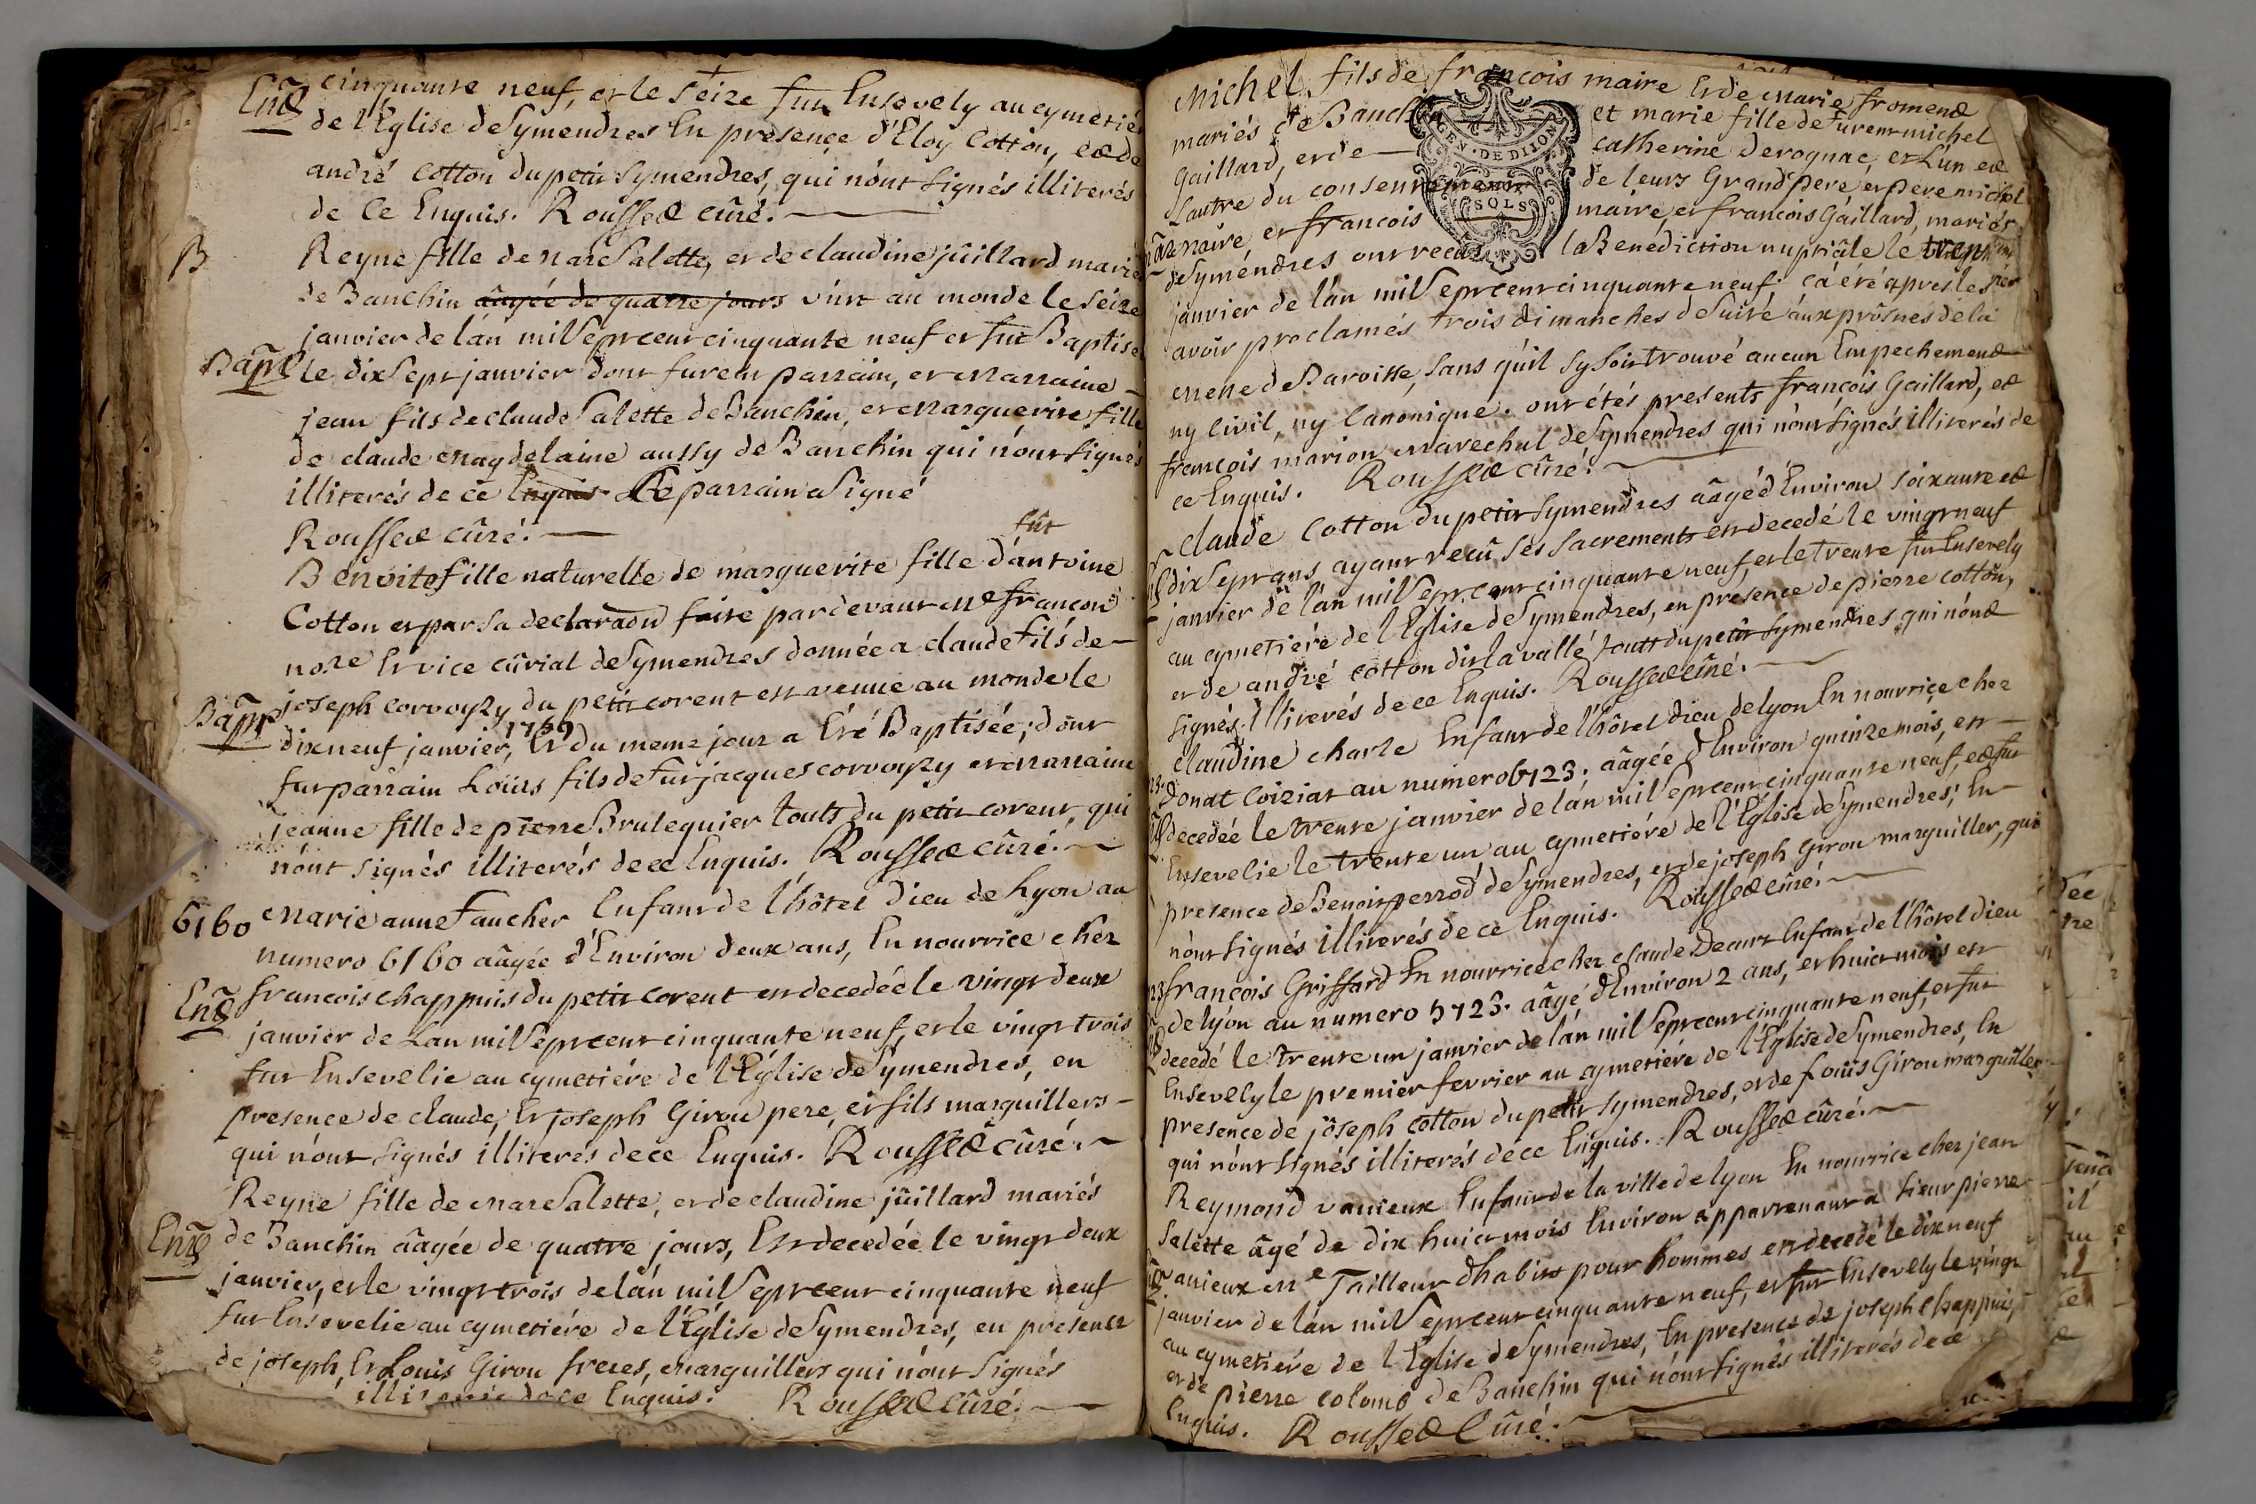 cinquante neuf, et le seize fut Ensevely au cymetié
Ent
de l'Eglise de Symendres En presence d'Eloy Cotton, et de
andré Cotton du petit Symendres, qui n'ont signés illiterés
de ce Enquis. Rousset cûré.
B
Reyne fille de Marc Salette, et de claudine jüillard marié
de Banchin âagée de quatre jours vint au monde le séize
janvier de l'an mil sept cent cinquante neuf et fut Baptisé
Bapt
le dix sept janvier dont furent parrain, et Marraine
jean fils de claude Salette de Banchin, et Marguerite fille
de claude Magdelaine aussy de Banchin qui n'ont signés
illiterés de ce Enquis Le parrain a signé
Rousset cûré.
fût
Benoite fille naturelle de marguerite fille d'antoine
Cotton et par sa declaraon faite pardevant Me francon
nore Et vice cûrial de Symendres donnée a claude fils de
joseph corvoyzy du petit corent est venue au monde le
Bapt
1759
dix neuf janvier, Et du meme jour a Eté Baptisée; dont
fut parrain Loüis fils de fut jacques corvoyzy et Marraine
jeanne fille de pierre Brulequier touts du petit corent, qui
n'ont signés illiterés de ce Enquis. Rousset cûré.
6160
Marie anne Faucher Enfant de l'hôtel Dieu de Lyon au
numero 6160 âagée d'Environ deux ans, En nourrice chez
Ent
francois chappuis du petit corent est decedée le vingt deux
janvier de Lan mil sept cent cinquante neuf, et le vingt trois
fut Ensevelie au cymetiére de l'Eglise de Symendres, en
presence de claude, Et joseph Girou pere, et fils marguillers
qui n'ont signés illiterés de ce Enquis. Rousset cûré.
Reyne fille de Marc Salette, et de claudine jüillard mariés
Ent
de Banchin âagée de quatre jours, Est decedée le vingt deux
janvier, et le vingt trois de l'an mil sept cent cinquante neuf
fut Ensevelie au cymetiére de l'Eglise de Symendres, en presence
de joseph, Et Louis Girou freres, marguillers qui n'ont signés
illiterés de ce Enquis. Rousset Cûré.
Michel fils de francois maire Et de Marie froment
mariés de Banchin et marie fille de furent michel
Gaillard, et de catherine derognac, et L'un et
GEN · DE DIJON
SOLS
L'autre du consentement de leurs Grand'pere et pere michel
maire, et francois maire, et francois Gaillard, mariés
de Symendres ont recûs la Benediction nuptiale le
janvier de l'an mil sept cent cinquante neuf. ça été apres les
avoir proclamés trois dimanches de suité aux prônes de la
messe de Paroisse, sans qu'il s'y soit trouvé aucun Empechement
ny Civil, ny Canonique. ont étés presents françois Gaillard, et
francois marion Marechal de Symendres qui n'ont signés illiterés de
ce Enquis. Rousset cûré.
Claude Cotton du petit Symendres âagé d'Environ soixante et
dix sept ans ayant recû ses sacrements est decedé le vingt neuf
janvier de l'an mil sept cent cinquante neuf, et le trente fut Ensevely
au cymetiére de l'Eglise de Symendres, en presence de pierre cotton,
et de andré cotton dit la vallé touts du petit Symendres qui n'ont
signés illiterés de ce Enquis. Rousset cûré.
Claudine charle Enfant de l'hôtel dieu de lyon En nourrice chez
Donat Coiziat au numero 6123. âagée d'Environ quinze mois, est
decedée le trente janvier de l'an mil sept cent cinquante neuf, et fut
Ensevelie le trente un au cymetiére de l'Eglise de Symendres, En
presence de Benoit perrod de Symendres, et de joseph Girou marguiller, qui
n'ont signés illiterés de ce Enquis. Rousset cûré.
françois Griffard En nourrice chez claude Decour Enfant de l'hôtel dieu
de lyon au numero 5723. âagé d'Environ 2 ans, et huict mois est
decedé le trente un janvier de l'an mil sept cent cinquante neuf, et fut
Ensevely le premier fevrier au cymetiére de l'Eglise de Symendres, En
presence de joseph cotton du petit Symendres, et de Loüis Girou marguiller
qui n'ont signés illiterés de ce Enquis. Rousset cûré.
Reymond vanieux Enfant de la ville de lyon En nourrice chez jean
Salette âgé de dix huict mois Environ appartenant a sieur pierre
vanieux Me Tailleur d'habits pour hommes est decedé le dix neuf
janvier de l'an mil sept cent cinquante neuf, et fut Ensevely le vingt
au cymetiére de l'Eglise de Symendres, En presence de joseph chappuis,
et de pierre colomb de Banchin qui n'ont signés illiterés de ce
Enquis. Rousset Cûré.